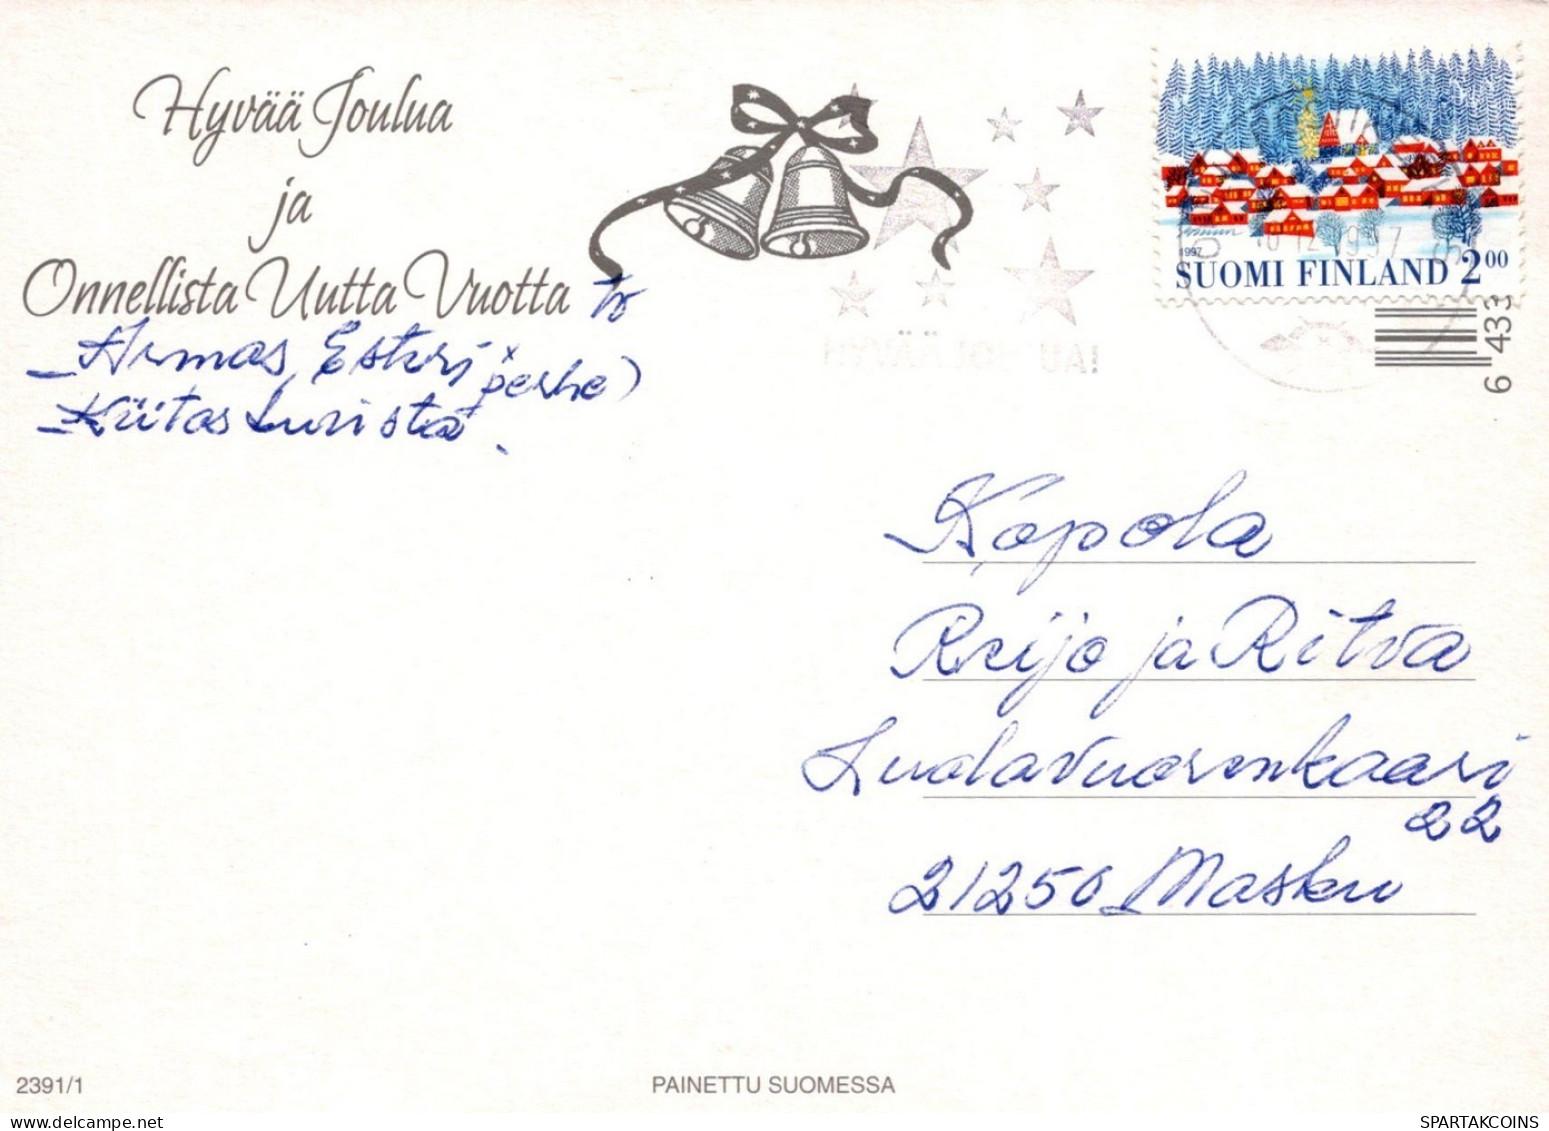 Hyvää Joulua
ja
Onnellista Uutta Vuotta
Armas, Esteri
perhe)
Kiitos
1997
SUOMI FINLAND 2.00
1997
6 433
Kopola
Reijo ja Ritva
Luolavuorenkaari
22
21250 Masku
2391/1
PAINETTU SUOMESSA
SPARTAKCOINS